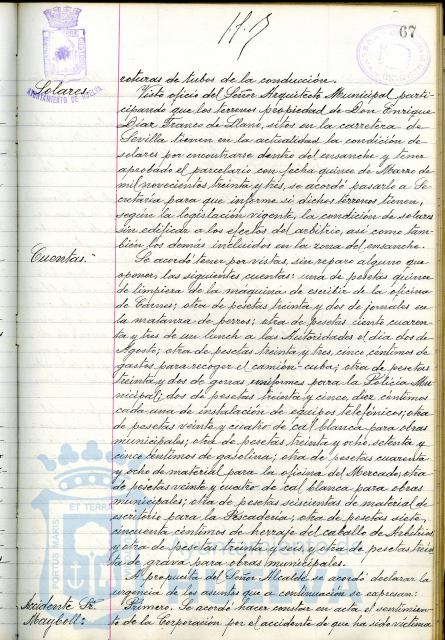 67
Solares.
AYUNTAMIENTO DE HUELVA
roturas de tubos de la conducción.
Visto oficio del Señor Arquitecto Municipal parti-
cipando que los terrenos propiedad de Don Enrique
Díaz Franco de Llano, sitos en la carretera de
Sevilla tienen en la actualidad la condición de
solares por encontrarse dentro del ensanche y tener
aprobado el parcelario con fecha quince de Marzo de
mil novecientos treinta y tres, se acordó pasarlo a Se-
cretaría para que informe si dichos terrenos tienen,
según la legislación vigente, la condición de solares
sin edificar a los efectos del arbitrio, así como tam-
bién los demás incluidos en la zona del ensanche.
Cuentas.-
Se acordó tener por vistas, sin reparo alguno que
oponer las siguientes cuentas: una de pesetas quince
de limpieza de la máquina de escribir de la oficina
de Carnes; otra de pesetas treinta y dos de jornales en
la matanza de perros; otra de pesetas ciento cuaren-
ta y tres de un lunch a las Autoridades el día dos de
Agosto; otra de pesetas treinta y tres, cinco céntimos de
gastos para recoger el camión-cuba; otra de pesetas
treinta y dos de uniformes para la Policía Mu-
nicipal; dos de pesetas treinta y cinco, diez céntimos
cada una de instalación de equipos telefónicos; otra
de pesetas veinte y cuatro de cal blanca para obras
municipales; otra de pesetas treinta y ocho, setenta y
cinco céntimos de gasolina; otra de pesetas cuarenta
y ocho de material para la oficina del Mercado; otra
de pesetas veinte y cuatro de cal blanca para obras
municipales; otra de pesetas seiscientas de material de
escritorio para la Pescadería; otra de pesetas siete,
cincuenta céntimos de herraje del caballo de Arbitrios
y otra de pesetas treinta y seis y otra de pesetas trein-
ta de grava para obras municipales.
A propuesta del Señor Alcalde se acordó declarar la
urgencia de los asuntos que a continuación se expresan:
Accidente Sr.
Mayboll.-
Primero. Se acordó hacer constar en acta el sentimien-
to de la Corporación por el accidente de que ha sido víctima
PORTUS MARIS
ET TERRAE